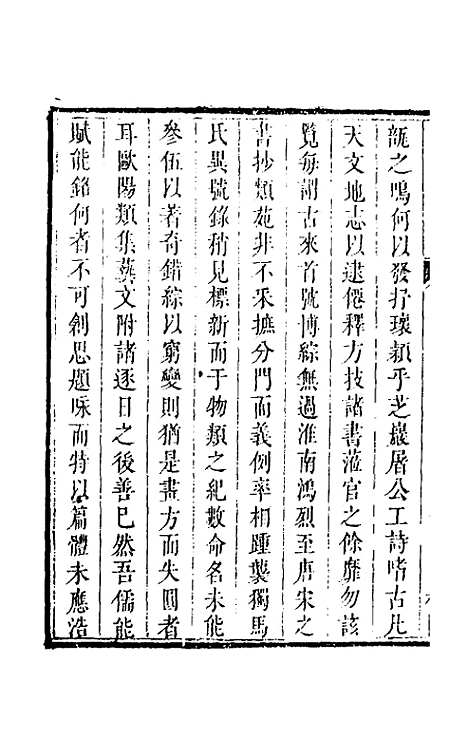 瓿之鳴何以發抒瓌穎乎芝巖屠公工詩嗜古凡
天文地志以逮僊釋方技諸書蒞官之餘靡勿該
覽每謂古來首號博綜無過淮南鴻烈至唐宋之
書抄類苑非不釆摭分門而義例率相踵襲獨馬
氏異號錄稍見標新而于物類之紀數命名未能
參伍以著奇錯綜以窮變則猶是畫方而失圓者
耳歐陽類集藝文附諸逐日之後善已然吾儒能
賦能銘何者不可創思題咏而特以篇體未應浩